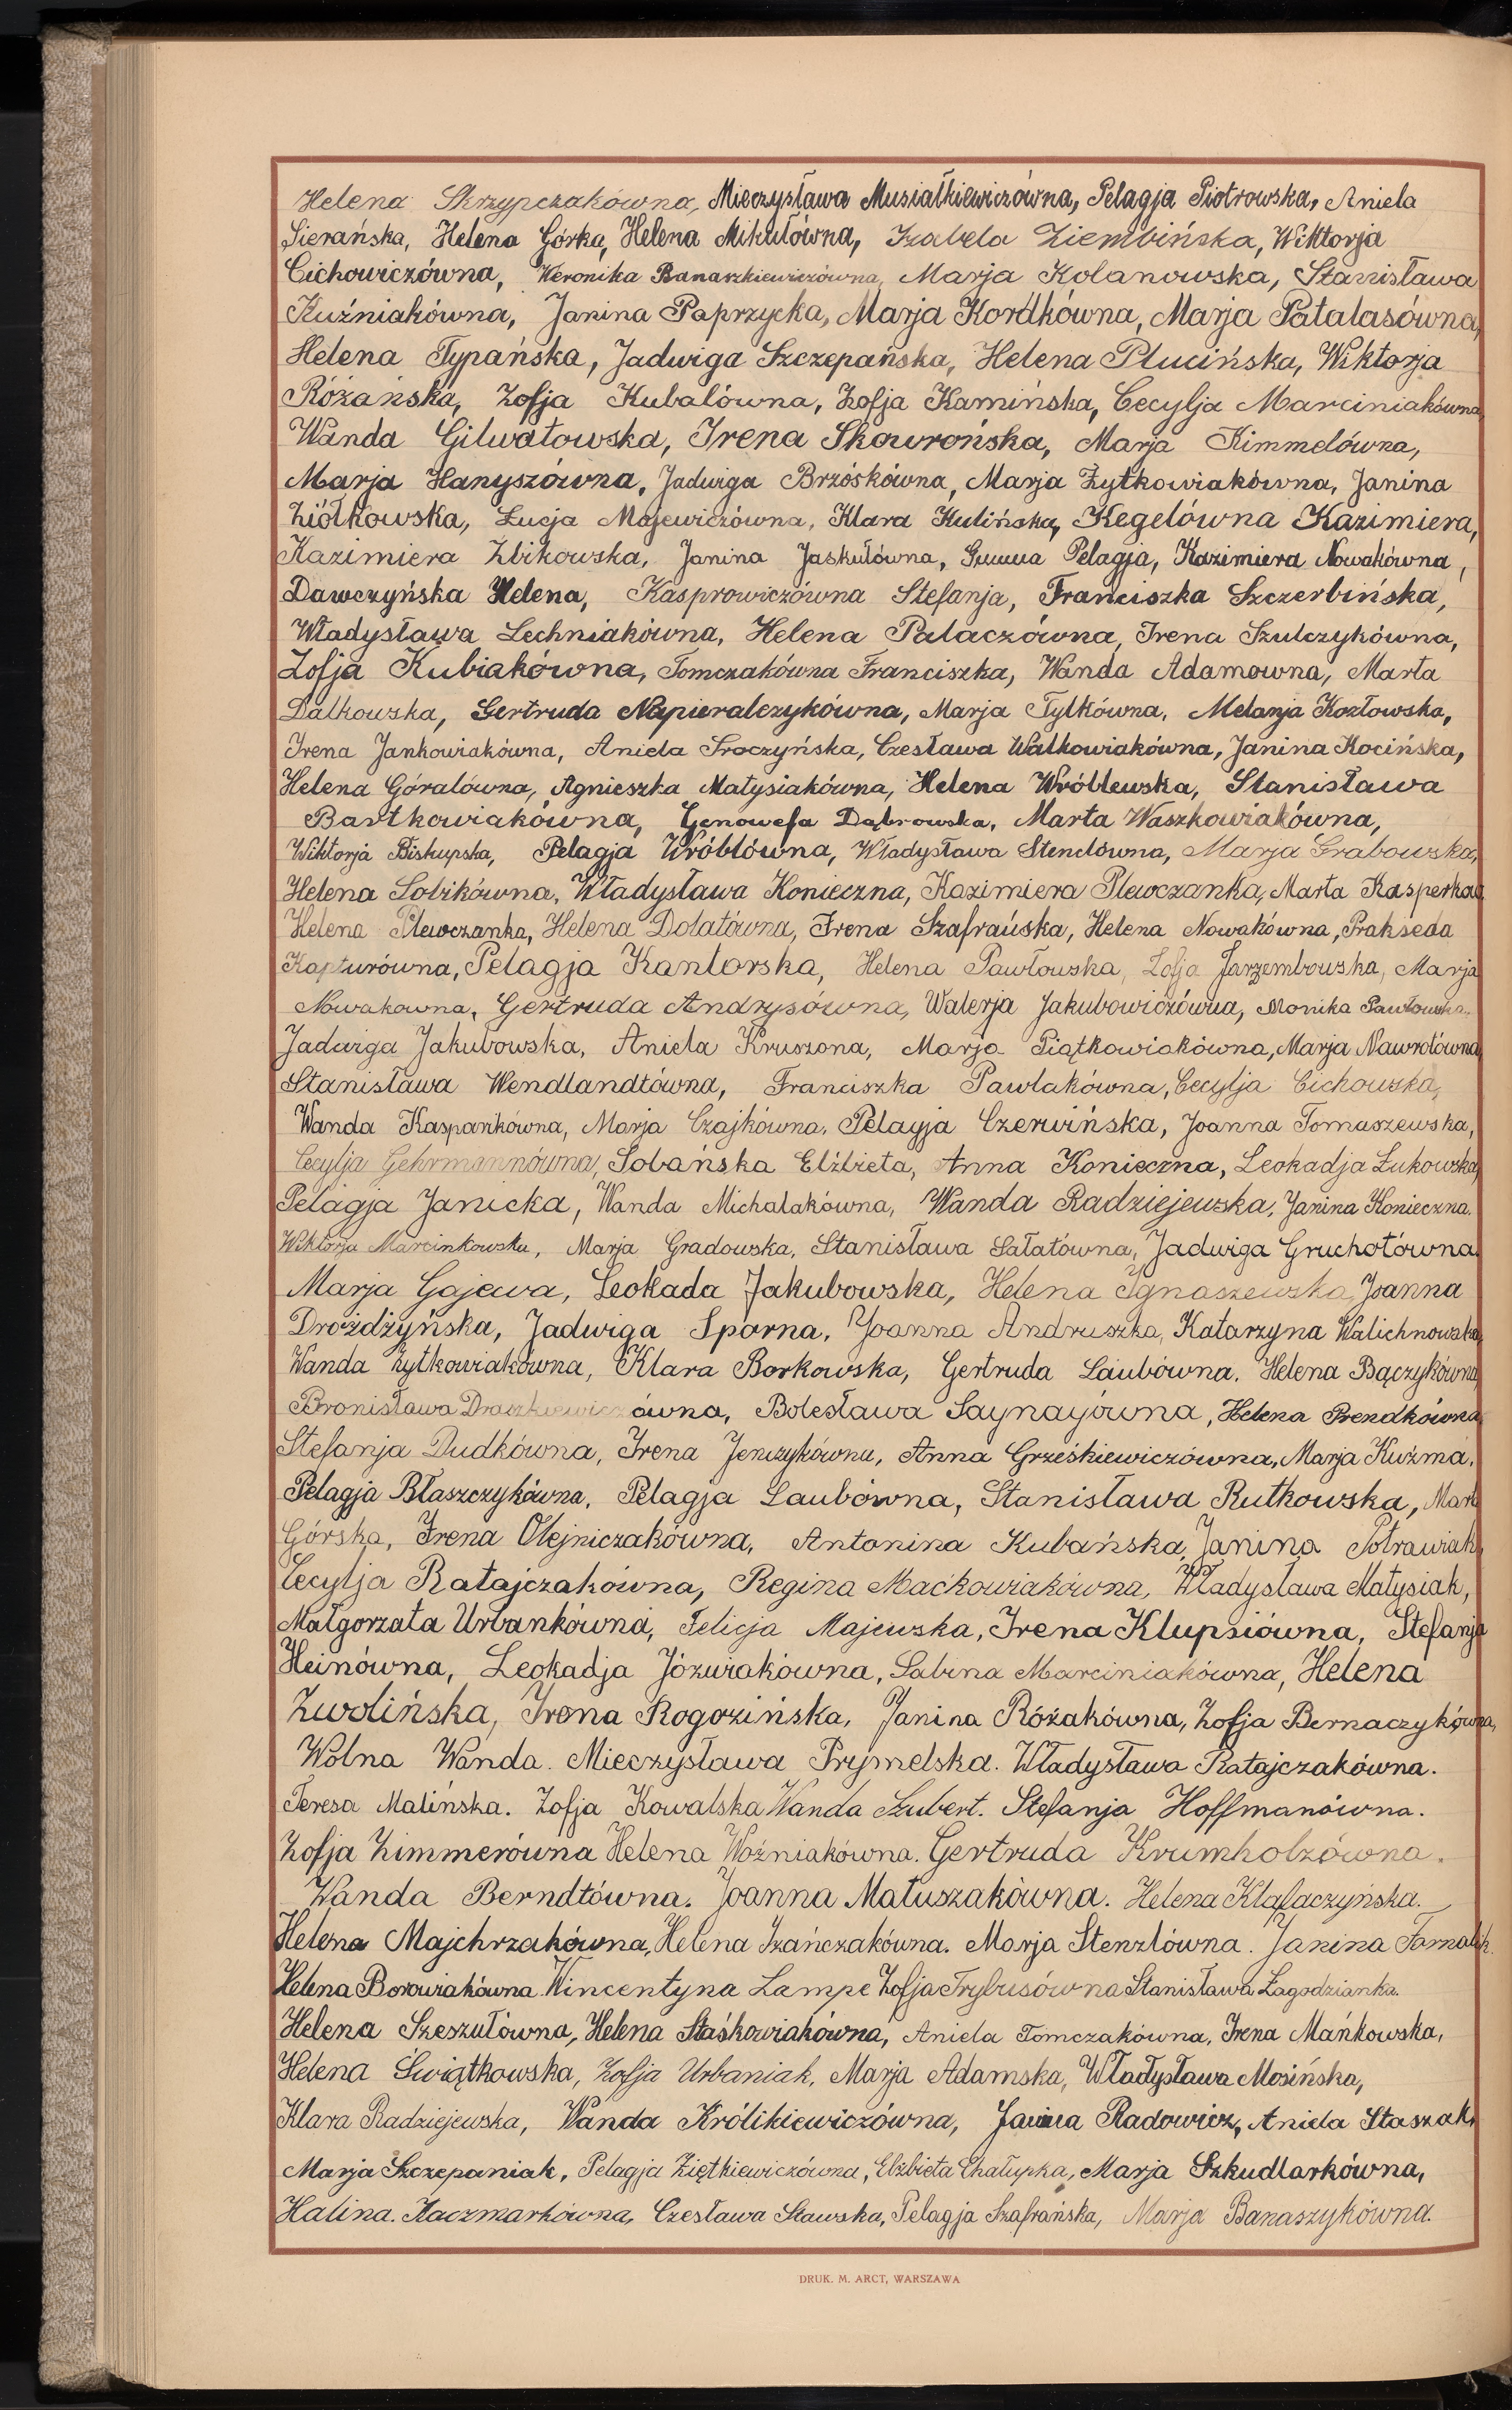 Helena Skrzypczakówna, Mieczysława Musiałkiewiczówna, Pelagja Piotrowska, Aniela
Sierańska, Helena Górka, Helena Mikułówna, Izabela Ziembińska, Wiktorja
Cichowiczówna, Weronika Banaszkiewiczówna, Marja Kolanowska, Stanisława
Kuźniakówna, Janina Paprzycka, Marja Kordkówna, Marja Patalasówna,
Helena Typańska, Jadwiga Szczepańska, Helena Plucińska, Wiktorja
Różańska, Zofja Kubalówna, Zofja Kamińska, Cecylja Marciniakówna
Wanda Gilwatowska, Irena Skowrońska, Marja Kimmelówna,
Marja Hanyszówna, Jadwiga Brzóskówna, Marja Żytkowiakówna, Janina
Ziółkowska, Łucja Majewiczówna, Klara Kulińska, Kegelówna Kazimiera,
Kazimiera Zbikowska, Janina Jaskułówna, Pelagja, Kazimiera Nowakówna,
Dawczyńska Helena, Kasprowiczówna Stefanja, Franciszka Szczerbińska,
Władysława Lechniakówna, Helena Palaczówna, Irena Szulczykówna,
Zofja Kubiakówna, Tomczakówna Franciszka, Wanda Adamowna, Marta
Dalkowska, Gertruda Napieralczykówna, Marja Tylkówna, Melanja Kozłowska,
Irena Jankowiakówna, Aniela Sroczyńska, Czesława Walkowiakówna, Janina Kocińska,
Helena Góralówna, Agnieszka Matysiakówna, Helena Wróblewska, Stanisława
Bartkowiakówna, Genowefa Dąbrowska, Marta Waszkowiakówna,
Wiktorja Biskupska, Pelagja Wróblówna, Władysława Stenclówna, Marja Grabowska,
Helena Sobikówna, Władysława Konieczna, Kazimiera Plewczanka, Marta Kasperka
Helena Plewczanka, Helena Dolatówna, Irena Szafrańska, Helena Nowakówna, Prakseda
Kapturówna, Pelagja Kantorska, Helena Pawłowska, Zofja Jarzembowska, Marja
Nowakowna, Gertruda Andrysówna, Walerja Jakubowiczówna, Monika Pawłowska,
Jadwiga Jakubowska, Aniela Kruszona, Marja Piątkowiakówna, Marja Nawrotówna
Stanisława Wendlandtówna, Franciszka Pawlakówna, Cecylja Cichowska,
Wanda Kasparikówna, Marja Czajkówna, Pelagja Czerwińska, Joanna Tomaszewska,
Cecylja Gehrmannówna, Sobańska Elżbieta, Anna Konieczna, Leokadja Łukowska,
Pelagja Janicka, Wanda Michalakówna, Wanda Radziejewska, Janina Konieczna.
Wiktorja Marcinkowska, Marja Gradowska, Stanisława Sałatówna, Jadwiga Gruchotówna
Marja Gajewa, Leokada Jakubowska, Helena Ignaszewska, Joanna
Drożdżyńska, Jadwiga Sporna, Joanna Andruszka, Katarzyna Walichnowska,
Wanda Żytkowiakówna, Klara Borkowska, Gertruda Laubówna, Helena Bączykówna,
Bronisława Draszkiewiczówna, Bolesława Saynayówna, Helena Prendkówna
Stefanja Dudkówna, Irena Jenczykówna, Anna Grześkiewiczówna, Marja Kuźma,
Pelagja Błaszczykówna, Pelagja Laubówna, Stanisława Rutkowska, Mart
Górska, Irena Olejniczakówna, Antonina Kubańska, Janina Potrawiak,
Cecylja Ratajczakówna, Regina Mackowiakówna, Władysława Matysiak,
Małgorzata Urbankówna, Felicja Majewska, Irena Klupsiówna, Stefanja
Heinówna, Leokadja Józwiakówna, Sabina Marciniakówna, Helena
Zwolińska, Irena Rogozińska, Janina Różakówna, Zofja Bernaczykówna,
Wolna Wanda. Mieczysława Prymelska. Władysława Ratajczakówna.
Teresa Malińska. Zofja Kowalska Wanda Szubert. Stefanja Hoffmanówna.
Zofja Zimmerówna Helena Woźniakówna. Gertruda Krumholzówna.
Wanda Berndtówna. Joanna Matuszakówna. Helena Klafaczyńska.
Helena Majchrzakówna, Helena Izańczakówna. Marja Stenzlówna. Janina Tomalik.
Helena Borowiakówna Wincentyna Lampe Zofja Trybusówna Stanisława Łagodzianka.
Helena Szeszułówna, Helena Staśkowiakówna, Aniela Tomczakówna, Irena Mańkowska,
Helena Świątkowska, Zofja Urbaniak, Marja Adamska, Władysława Mosińska,
Klara Radziejewska, Wanda Królikiewiczówna, Janina Radowicz, Aniela Staszak,
Marja Szczepaniak, Pelagja Ziętkiewiczówna, Elżbieta Chałupka, Marja Szkudlarkówna,
Halina. Kaczmarkówna, Czesława Stawska, Pelagja Szafrańska, Marja Banaszykówna.
DRUK. M. ARCT, WARSZAWA